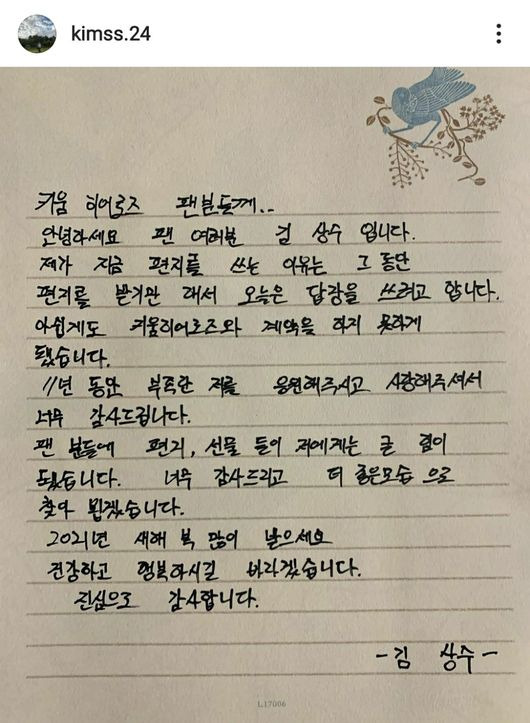 kimss.24
키움 히어로즈 팬분들께..
안녕하세요 팬 여러분 김 상수 입니다.
제가 지금 편지를 쓰는 이유는 그 동안
편지를 받기만 해서 오늘은 답장을 쓰려고 합니다.
아쉽게도 키움히어로즈와 계약을 하지 못하게
됐습니다.
11년 동안 부족한 저를 응원해주시고 사랑해주셔서
너무 감사드립니다.
팬 분들에 편지, 선물 들이 저에게는 큰 힘이
됬습니다. 너무 감사드리고 더 좋은모습 으로
찾아 뵙겠습니다.
2021년 새해 복 많이 받으세요
건강하고 행복하시길 바라겠습니다.
진심으로 감사합니다.
- 김 상수 -
L17006